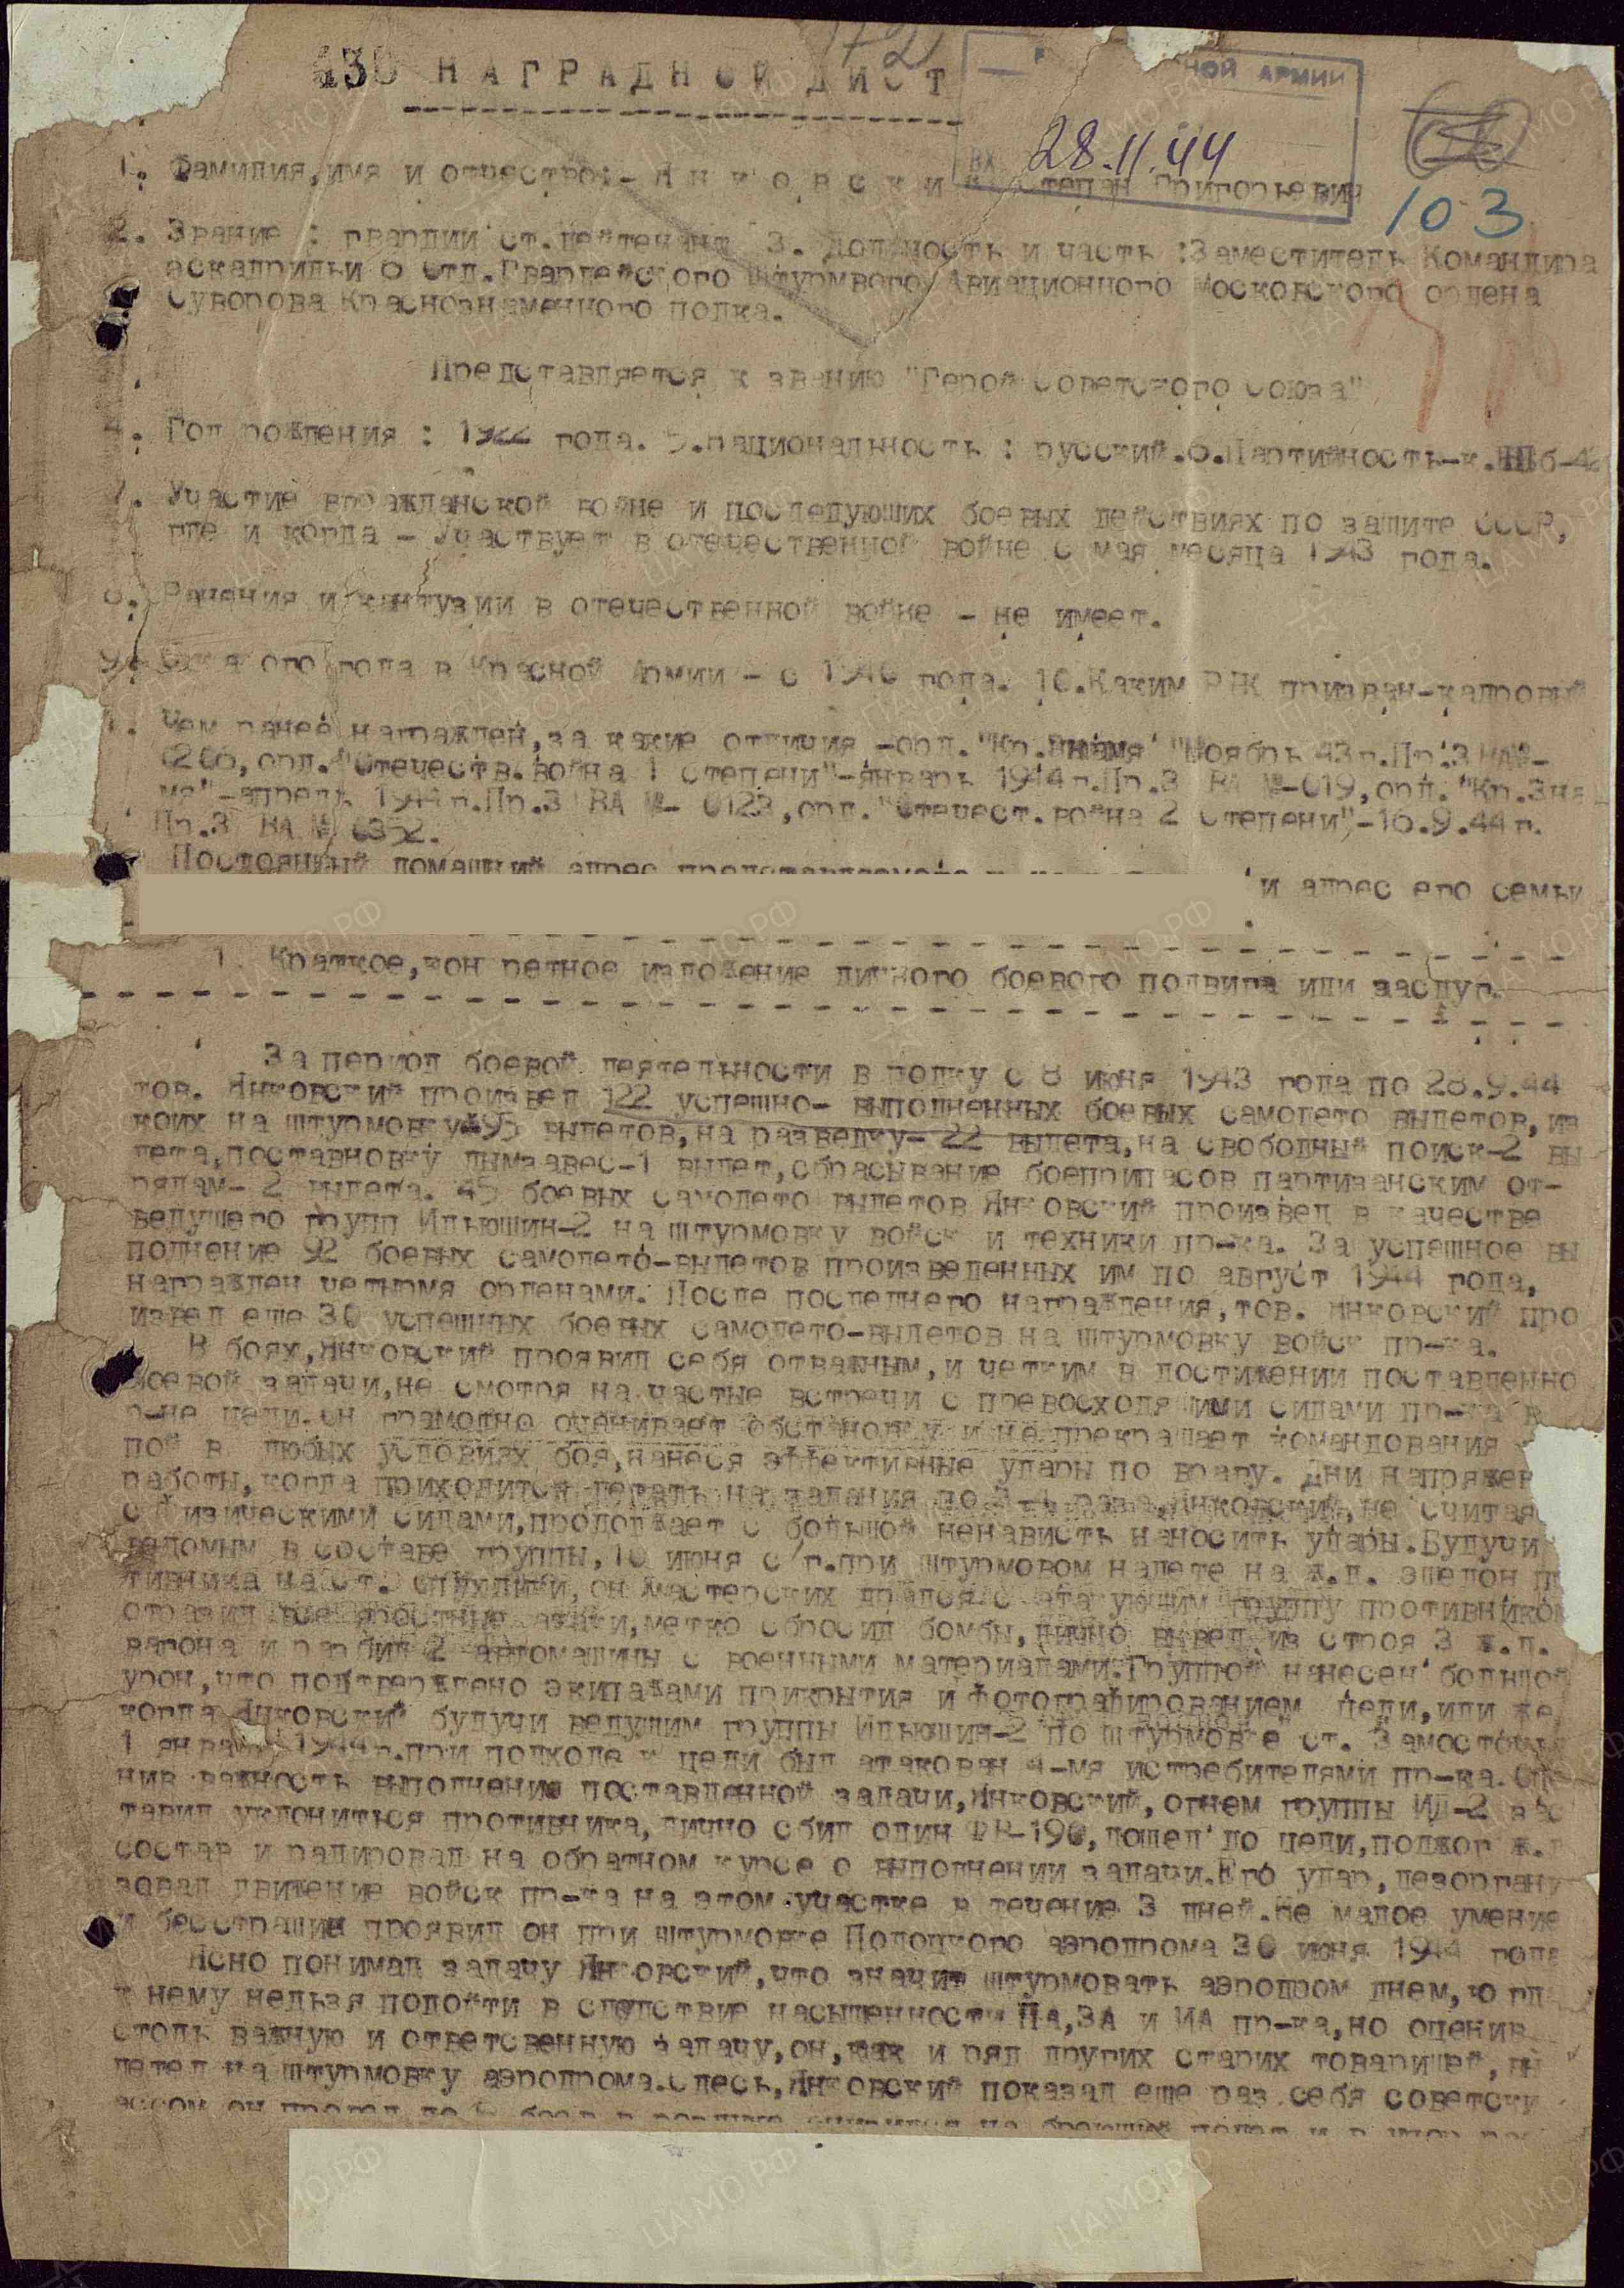 430 НАГРАДНОЙ ЛИСТ
НОЙ АРМИИ
ВХ 28.11.44
103
1. Фамилия,имя и отчество:- Янковский Степан Григорьевич
2. Звание : гвардии ст.лейтенант 3. Должность и часть :Заместитель Командира
эскадрильи 6 Отд.Гвардейского Штурмвого Авиационного Московского ордена
Суворова Краснознаменного полка.
Представляется к званию "Герой Советского Союза"
4. Год рождения : 1922 года. 5.национальность : русский.6.Партийность-к.
7. Участие вгражданской войне и последующих боевых действиях по защите СССР,
где и когда - Участвует в отечественной войне с мая месяца 1943 года.
8. Ранения и кантузии в отечественной войне - не имеет.
9. ого года в Красной Армии - с 1940 года. 10.Каким РВК призван-кадровый
Чем ранее награжден,за какие отличия -орд."Кр.Знамя" Ноябрь 43г.Пр.3 ВА№-
орд."Отечеств.война 1 Степени"-январь 1944г.Пр.3 ВА №-019,орд."Кр.Зна
мя"-апрель 1944г.Пр.3 ВА №- 0123,орд."Отечест.война 2 Степени"-16.9.44г.
Пр.3 ВА №
Постоянный домашний адрес и адрес его семьи
Краткое,кон ретное изложение личного боевого подвига или заслуг.
За период боевой деятельности в полку с 8 июня 1943 года по 28.9.44
тов. Янковский произвел 122 успешно- выполненных боевых самолето вылетов,из
коих на штурмовку-95 вылетов,на разведку- 22 вылета,на свободный поиск-2 вы
лета,поставновку дымзавес-1 вылет,сбрасывание боеприпасов партизанским от-
рядам- 2 вылета. 45 боевых самолето вылетов Янковский произвел в качестве
ведущего групп Ильюшин-2 на штурмовку войск и техники пр-ка. За успешное вы
полнение 92 боевых самолето-вылетов произведенных им по август 1944 года,
награжден четырмя орденами. После последнего награждения,тов. Янковский про
извел еще 30 успешных боевых самолето-вылетов на штурмовку войск пр-ка.
В боях,Янковский проявил себя отважным,и четким в достижении поставленно
боевой задачи,не смотря на частые встречи с превосходящими силами пр-ка в
р-не цели.он грамотно оценивает обстановку и не прекращает командования
пой в любых условиях боя,нанеся эффективные удары по врагу. Дни напряжен
работы,когда приходится летать на задания по 3-4 раза,Янковский,не считая
с физическими силами,продолжает с большой ненависть наносить удары.Будучи
ведомым в составе группы,10 июня с/г.при штурмовом налете на ж.д. эшелон п
тивника на ст. он мастерских дрался с атакующим группу противником
отразил все яростные атаки,метко сбросил бомбы,лично вывел из строя 3 ж.д.
вагона и разбил 2 автомашины с военными материалами.Группой нанесен большой
урон,что подтверждено экипажами прикрытия и фотографированием цели,или же,
когда Янковский будучи ведущим группы Ильюшин-2 по штурмовке ст. Замосточье
1 января 1944г.при подходе к цели был атакован 4-мя истребителями пр-ка. Оце
нив важность выполнению поставленной задачи,Янковский,огнем группы ИЛ-2
тавил уклониться противника,лично сбил один ФВ-190,дошел до цели,поджог ж.д
состав и радировал на обратном курсе о выполнении задачи.Его удар,дезоргани
зовал движение войск пр-ка на этом участке в течение 3 дней.Не малое умение
и бесстрашие проявил он при штурмовке Полоцкого аэродрома 30 июня 1944 года
Ясно понимал задачу Янковский,что значит штурмовать аэродром днем,когда
к нему нельзя подойти в следствие насыщенности ПА,ЗА и ИА пр-ка,но оценив
столь важную и ответсвенную задачу,он,как и ряд других старих товарищей, вы
летел на штурмовку аэродрома.Сдесь,Янковский показал еще раз себя советски